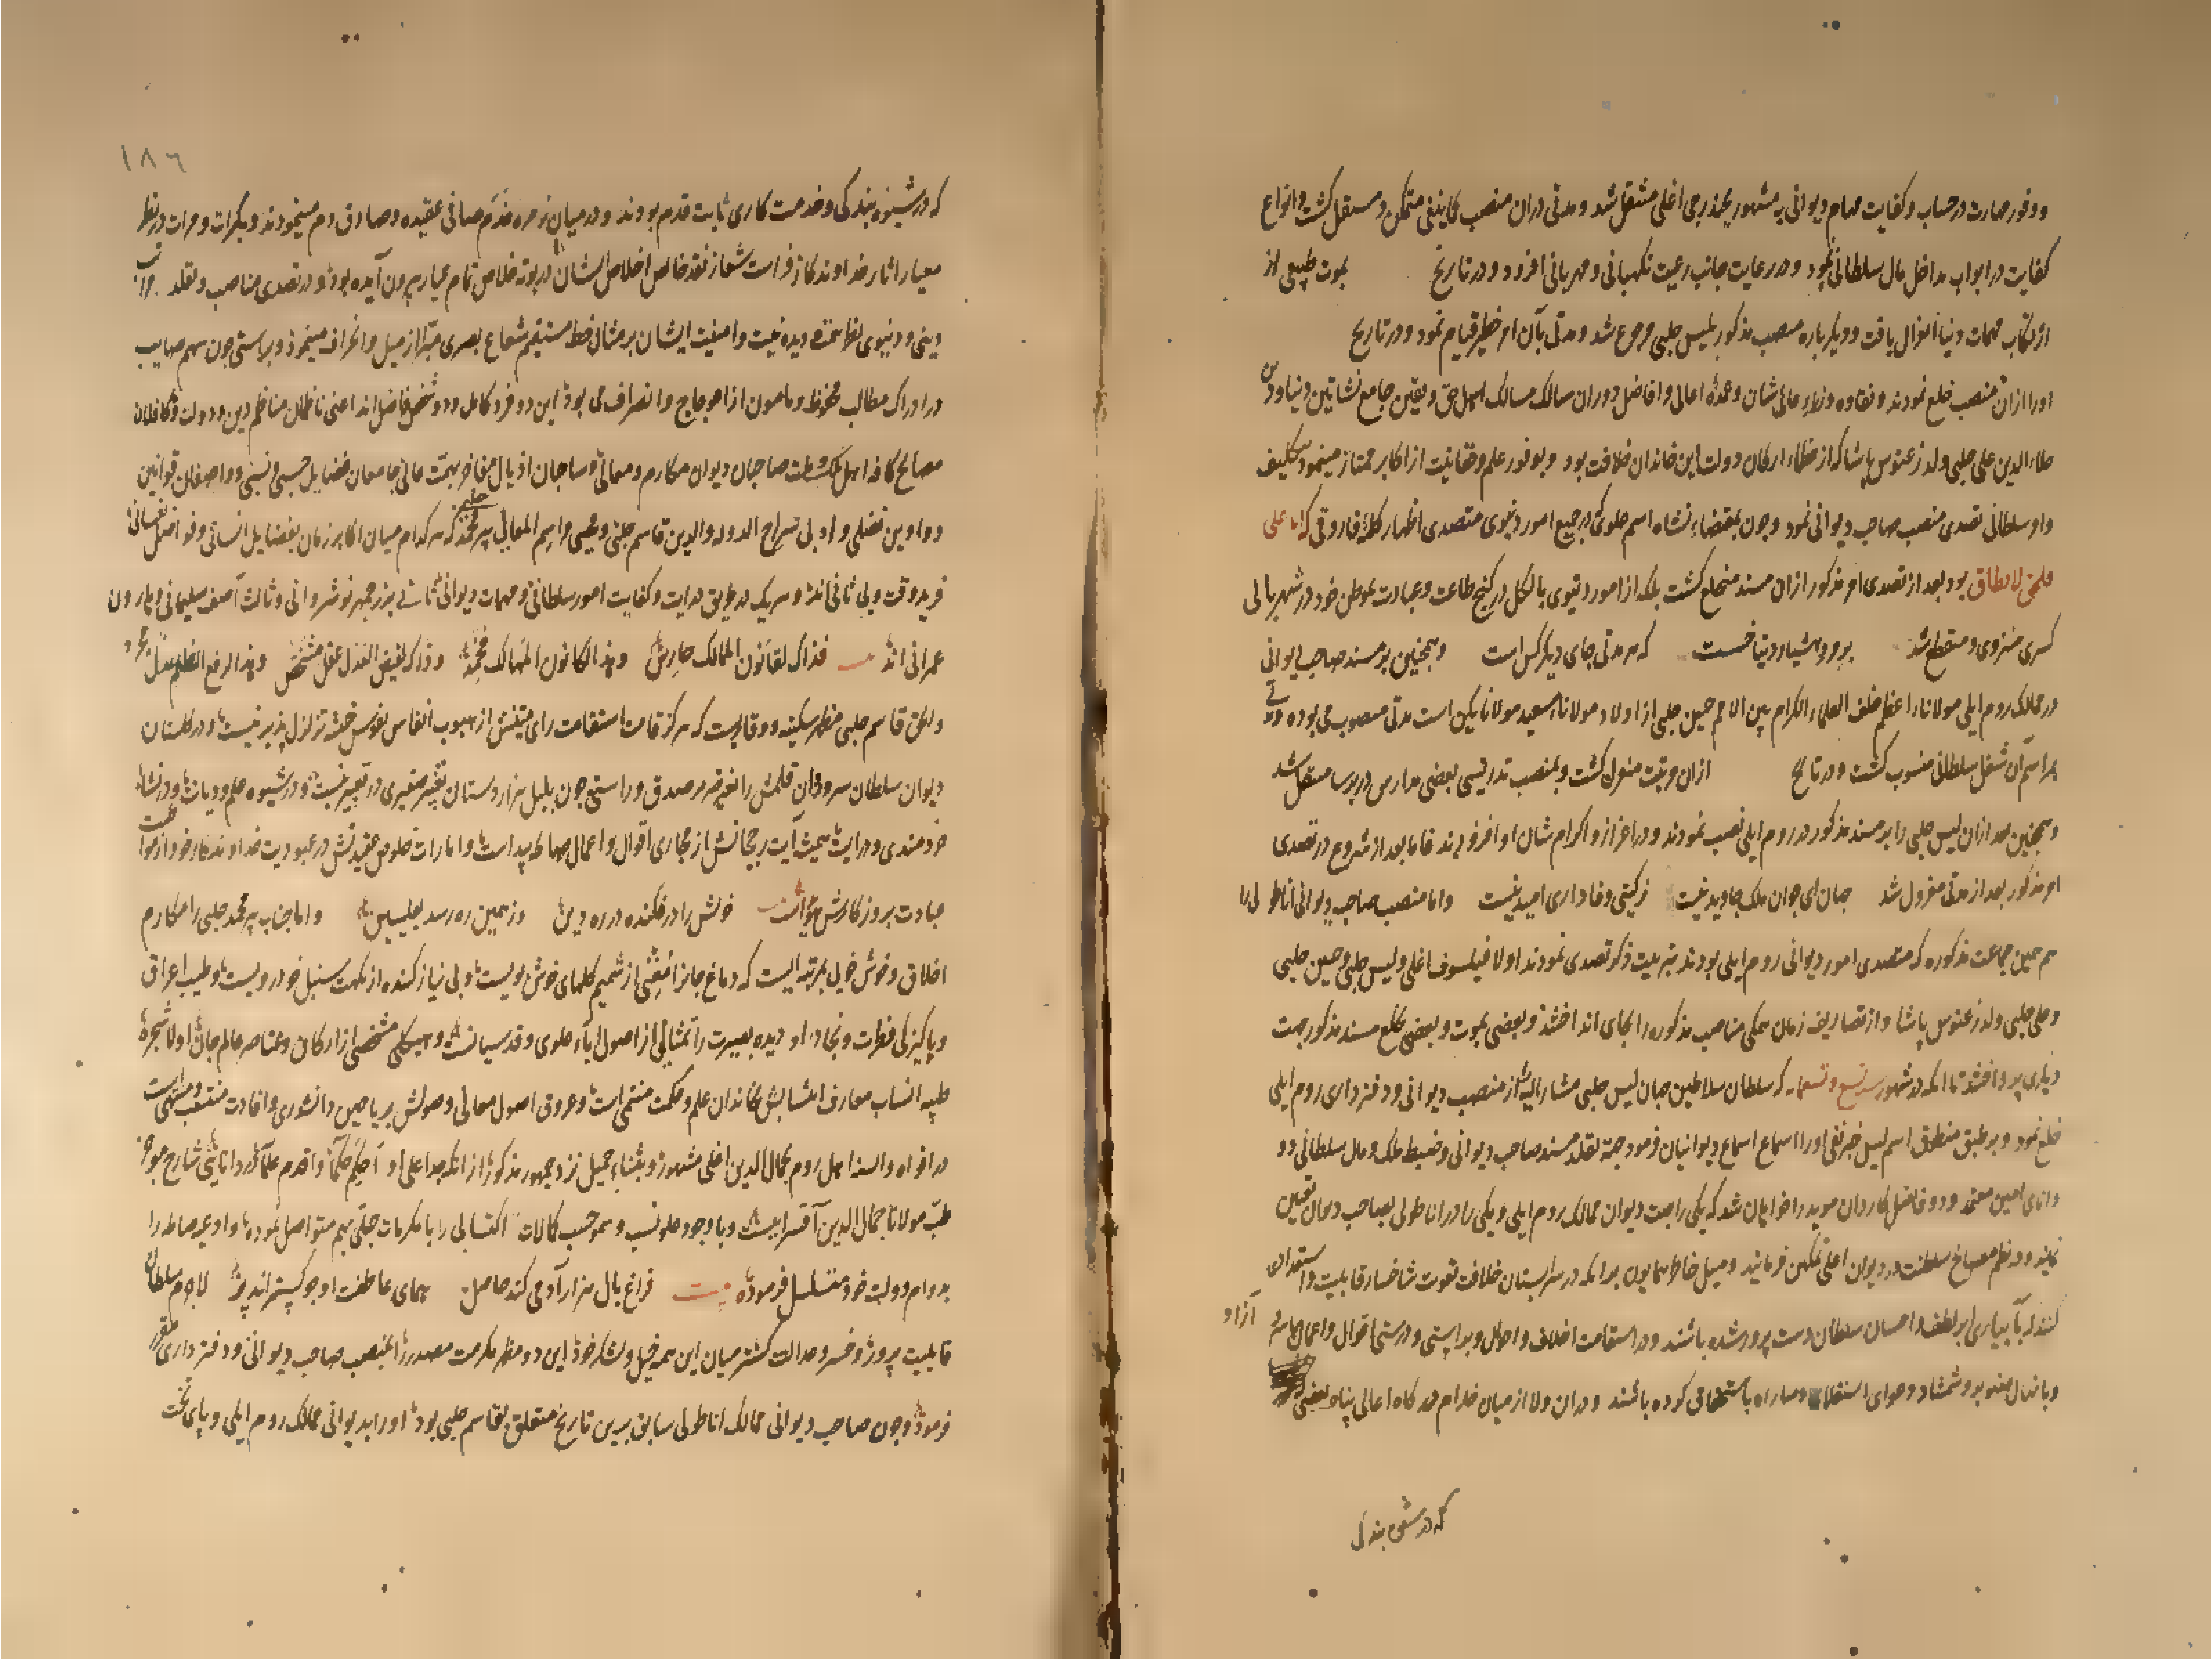 و وفور مهارت در حساب و کفایت مهام دیوانی به مشهور بجندرجی اغلی منتقل شد و مدتی در ان منصب کماینبغی متمکن و مستقل کشت و انواع
کفایت در ابواب مداخل مال سلطانی نمود و در رعایت جانب رعیت نکهبانی و مهربانی افزود و در تاریخ بموت طبیعی از
ارتکاب مهمات دنیا انعزال یافت و دیکر باره منصب مذکور بلیس جلبی مرجوع شد و مدتی بآن امر خطیر قیام نمود و در تاریخ
اورا ازان منصب خلع نمودند و نقاوه وزراء عالی شان و عمدهٔ اعالی و افاضل دوران سالک مسالک اهل حق و یقین جامع نشاتین دنیا و دین
علاء الدین علی جلبی ولد زغنوس پاشا که از عظماء ارکان دولت این خاندان خلافت بود و بوفور علم و حقانیت از اکابر ممتاز مینمود بتکلیف
و امر سلطانی تصدی منصب صاحب دیوانی نمود و چون بمقتضاء نشاه اسم علوی در جمیع امور دنیوی متصدی اظهار کلمهٔ فاروقی که اما علی
فلمتی لا تطاق بود بعد از تصدی امر مذکور ازان مسند منخلع کشت بلکه از امور دنیوی بالکل در کنج طاعت و عبادت بموطن خود در شهر بالی
کسری منزوی و منقطع شد برو و هشیار دنیا خست که هر مدتی جای دیکر کس است و همچنین بر مسند صاحب دیوانی
در ممالک روم ایلی مولاناء اعظم خلف العلماء الکرام بین الامم حسین جلبی از اولاد مولاناء سعید مولانا یکن است مدتی منصوب می بوده و مدتی
بمراسم آن شغل سلطانی منسوب کشت و در تاریخ ازان مرتبت معزول کشت و بمنصب تدریسی بعضی مدارس در بروسا منتقل شد
و همچنین بعد ازان لیس جلبی را بر مسند مذکور در روم ایلی نصب نمودند و در اعزاز و اکرام شان او افزودند فاما بعد از شروع در تصدی
امر مذکور بعد از مدتی معزول شد جهان ای جوان ملک جاوید نیست ز کیتی وفاداری امید نیست و اما منصب صاحب دیوانی اناطولی را
هم همین جماعت مذکوره که متصدی امور دیوانی روم ایلی بودند بترتیب ذکر تصدی نمودند اولا فیلسوف اغلی و لیس جلبی و حسین جلبی
و علی جلبی ولد زغنوس پاشا و از تصاریف زمان همکی مناصب مذکوره را بجای انداختند و بعضی بموت و بعضی بخلع مسند مذکور جهت
دیاری پرداختند تا انکه در شهور سنه تسع و تسعمایه که سلطان سلاطین جهان لیس جلبی مشار الیه را از منصب دیوانی و دفترداری روم ایلی
خلع نمود و بر طبق منطوق اسم لیس خبر نفی او را اسماع اسماع دیوانیان فرمود جهة تقلد مسند صاحب دیوانی و ضبط ملک و مال سلطانی دو
دانای امین معتمد و دو فاضل کاردان موید را خواهان شد که یکی را جهت دیوان ممالک روم ایلی و یکی را در اناطولی بصاحب دیوان تعیین
نمایند و در نظم مصالح سلطنت در دیوان اعلی تمکین فرمایند و میل خاطر همایون بر انکه در سرابستان خلافت بقوت شاخسار قابلیت و استعداد
کننده بآبیاری ابر لطف و احسان سلطان دست پرورشده باشند و در استقامت اخلاق و احوال و براستی و درستی اقوال و اعمال چون سرو آزاد
و بانتهال صنوبر و شمشاد در هوای استقلال و مباراه باستحقاق کرده باشند و دران ولا از میان خدام درکاه اعالی پناه بعضی
که در شیوه بندکی
١٨٦
که در شیوه بندکی و خدمت کاری ثابت قدم بودند و در میان زمره خدم صافی عقیده و صادق دم مینمودند و بکرات و مرات در نظر
معیار اثار خداوندکار فراست شعار نقد خالص اخلاص ایشان در بوته خلاص تمام عیار بیرون آمده بود و در تصدی مناصب و تقلد مراتب
دینی و دنیوی نظر همت دیده نیت و امنیت ایشان بر مثال خط مستقیم شعاع بصری مبرا از میل و انحراف مینمود و براستی چون سهم صایب
در ادراک مطالب محفوظ و مامون از اعوجاج و انصراف می بود این دو فرد کامل و دو شخص فاضل اند اعنی ناظمان مناظم دین و دولت و کافلان
مصالح کافه اهل مملکت صاحبان دیوان مکارم و معالی و ساحبان اذیال مفاخر بهمت عالی جامعان فضایل حسبی و نسبی و واضعان قوانین
و دواوین فضلی و ادبی سراج الدوله والدین قاسم جلبی و محیی مراسم المعالی پیر محمد جلبی که هر کدام میان اکابر زمان بفضایل انسانی و فواضل نفسانی
فرید وقت و بی ثانی اند و هر یک در طریق درایت و کفایت امور سلطانی و مهمات دیوانی ثانی بزرجمهر نوشروانی و ثالث آصف سلیمانی و هارون
عمرانی اند فذاک لقانون الممالک حارس و هذا لکانون المهالک مخمد و ذاک لفیض العدل عقل مشخص و هذا لرفع الظلم عدل مجرد
و الحق قاسم جلبی مظهر سکینه و وقاریست که هرکز قامت استقامت رای متینش از هبوب انفاس نفوس خبیثه تزلزل پذیر نیست و در کلستان
دیوان سلطان سرو روان قلمش را نغیر ضرصدق و راستی چون بلبل هزاردستان تغییر متغیری در تعبیر نیست و در شیوه علم و دیانت و در نشاه
خردمندی و درایت همیشه آیت رجحانش از مجاری اقوال و اعمال صالحه پیداست و امارات خلوص عقیدتش در عبودیت خداوندکار خود از مواظبت
عبادت بروز کارش هویداست خویش را درفکنده در ره دین وز همین ره رسد بعلیین و اما جناب پیر محمد جلبی را مکارم
اخلاق و خوش خویی بمرتبه ایست که دماغ جانرا مغنی از شمیم کلهای خوش بویست و بی نیاز کننده از نکهت سنبل خودرویست و طیب اعراق
و پاکیزکی فطرت و نجاد او دیده بصیرت را تمثالی از اصول آباء علوی و قدسیانست و هیکلی مشخص از ارکان و عناصر عالم جان اولا شجرهٔ
طیبه انتساب معارف انتسابش بخاندان علم و حکمت منتمی است و عروق اصول معالی وصولش بریاحین دانشوری و افادت منشعب و منتهی است
در افواه و السنه اهل روم بجمال الدین اغلی مشهور و بثناء جمیل نزد جمهور مذکور از انکه جد اعلی او احکم حکما و اقدم علما در دانایی شارح موجز
طب مولانا جمال الدین آقسرایست و با وجود علو نسب و سمو حسب کمالات اکتسابی را با مکرمات جبلی بهم متواصل نموده و ادعیه صالحه را
بدوام دولت خود متسلسل فرموده بیت فراغ بال هزار آدمی کند حاصل همای عاطفت او چو کستراند پر لاجرم سلطان
قابلیت پرور و خسرو عدالت کستر میان این همه خیل و لشکر خود این دو مظهر مکرمت مصدر را بمنصب صاحب دیوانی و دفترداری مقرر
فرمود و چون صاحب دیوانی ممالک اناطولی سابق برین تاریخ متعلق بقاسم جلبی بود او را بدیوانی ممالک روم ایلی و پای تخت